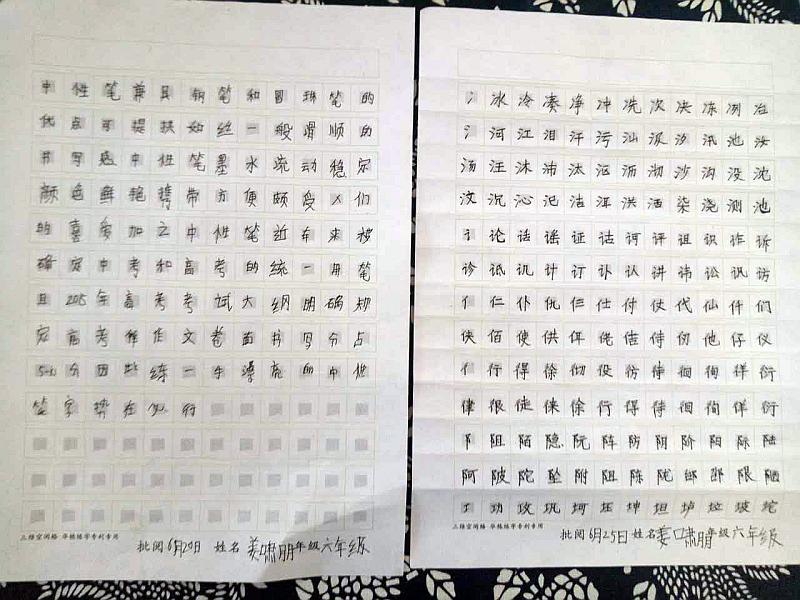 中性笔兼具钢笔和圆珠笔的
优点可提扶如丝一般滑顺的
书写感中性笔墨水流动稳定
颜色鲜艳携带方便颇受人们
的喜爱加之中性笔近年来被
确定中考和高考的统一用笔
且2015年高考考试大纲明确规
定高考语作文卷面书写分占
5-10分因此练一手漂亮的中性
笔字势在必行
三维空间格 华栋练字专利专用
批阅 6月20日 姓名 姜啸朋 年级 六年级
冫冰冷凑净冲冼次决冻冽冶
氵河江泪汗污汕汲汐汛池汝
汤汪沐沛汰沤沥沏沙沟没沈
汶沉沁汜洁洱洪洒染浇测池
讠论话谣证诂诃评诅识诈诉
诊诋讥计订讣认讲讳讼讽访
亻仁仆仇仨仕付仗代仙仟们
侠佰使供佴佬佶侍仞他仔仪
彳行得徐彻役彷待徊徇徉衍
律很徒徕徐行得待徊徇徉衍
阝阻陌隐阮阵防阴阶阳际陆
阿陂陀坠附阻陈陇邮邵限陋
工功攻巩坷压坤坦垆垃坡坨
三维空间格 华栋练字专利专用
批阅 6月25日 姓名 姜啸朋 年级 六年级